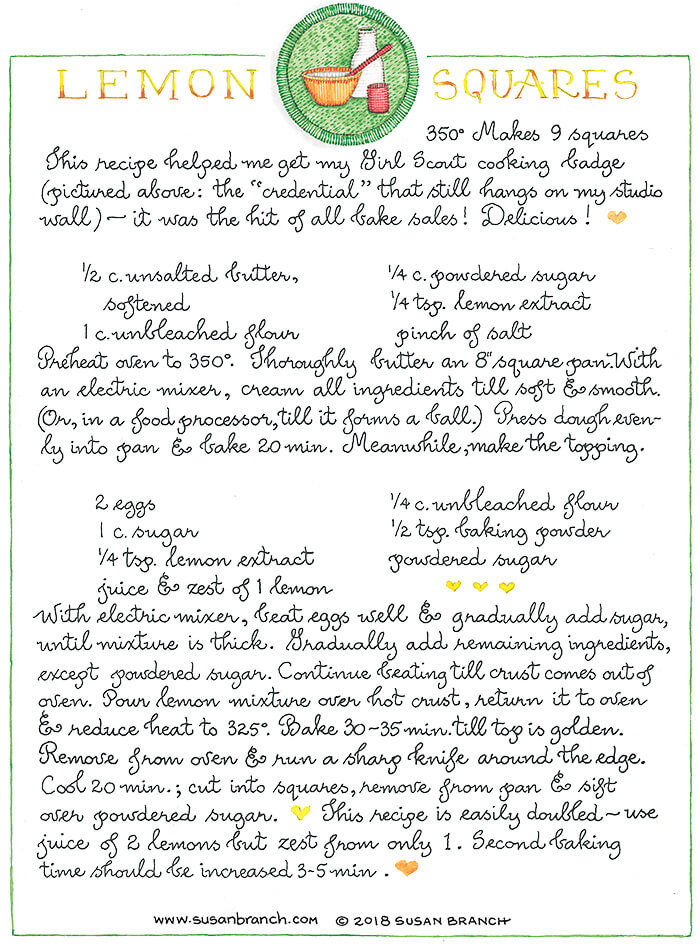 LEMON SQUARES
350° Makes 9 squares
This recipe helped me get my Girl Scout cooking badge
(pictured above: the "credential" that still hangs on my studio
wall) ~ it was the hit of all bake sales! Delicious!
1/2 c. unsalted butter,
softened
1 c. unbleached flour
1/4 c. powdered sugar
1/4 tsp. lemon extract
pinch of salt
Preheat oven to 350°. Thoroughly butter an 8" square pan. With
an electric mixer, cream all ingredients till soft & smooth.
(Or, in a food processor, till it forms a ball.) Press dough even-
ly into pan & bake 20 min. Meanwhile, make the topping.
2 eggs
1 c. sugar
1/4 tsp. lemon extract
juice & zest of 1 lemon
1/4 c. unbleached flour
1/2 tsp. baking powder
powdered sugar
With electric mixer, beat eggs well & gradually add sugar,
until mixture is thick. Gradually add remaining ingredients,
except powdered sugar. Continue beating till crust comes out of
oven. Pour lemon mixture over hot crust, return it to oven
& reduce heat to 325°. Bake 30~35 min. till top is golden.
Remove from oven & run a sharp knife around the edge.
Cool 20 min.; cut into squares, remove from pan & sift
over powdered sugar. This recipe is easily doubled ~ use
juice of 2 lemons but zest from only 1. Second baking
time should be increased 3-5 min.
www.susanbranch.com © 2018 SUSAN BRANCH